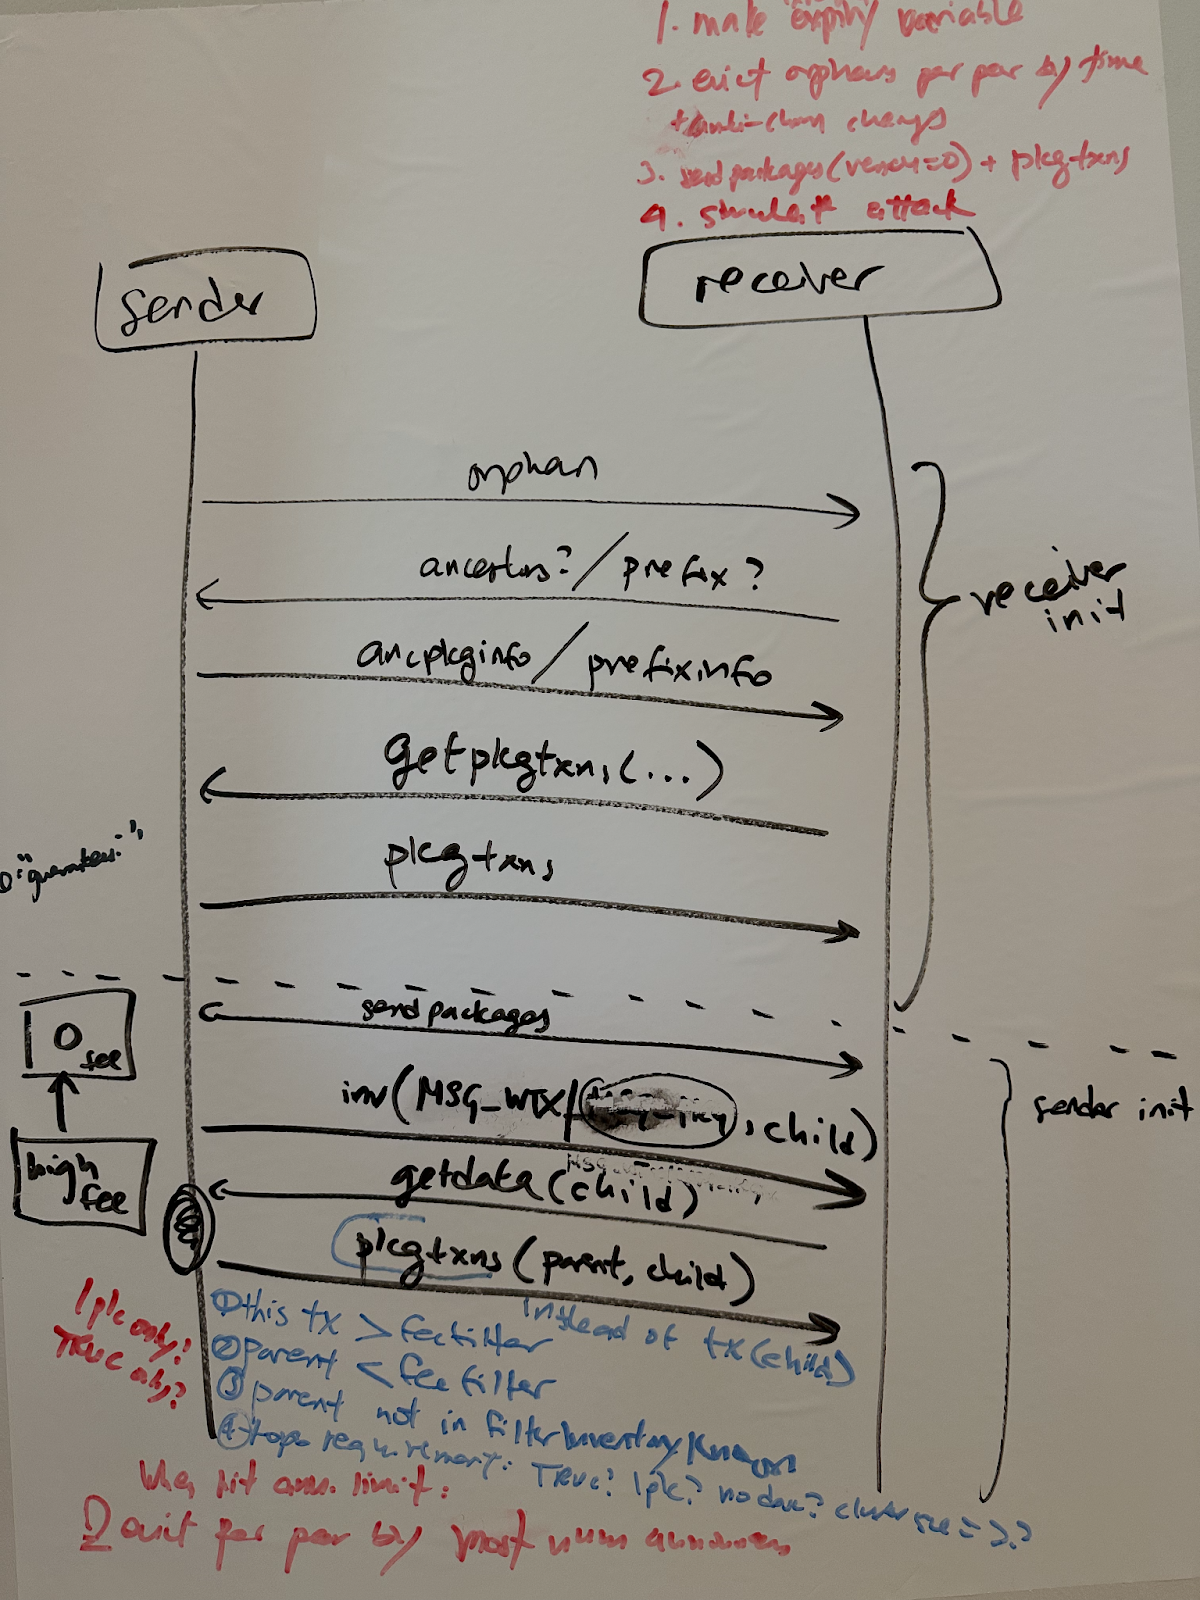 1. make expiry variable
2. evict orphans per peer by time
+ anti-churn changes
3. sendpackages(version=0) + pkgtxns
4. simulate attack
sender
receiver
orphan
ancestors? / prefix?
ancpkginfo / prefixinfo
receiver
init
getpkgtxns(...)
pkgtxns
sendpackages
0
fee
inv(MSG_WTX/ , child)
sender init
high
fee
getdata(child)
pkgtxns(parent, child)
instead of tx(child)
1p1c only?
TRUC only?
① this tx > feefilter
② parent < feefilter
③ parent not in filterInventoryKnown
④ topo requirement: TRUC? 1p1c? no desc? cluster size = 2?
When hit ann. limit:
evict per peer by most num announcements